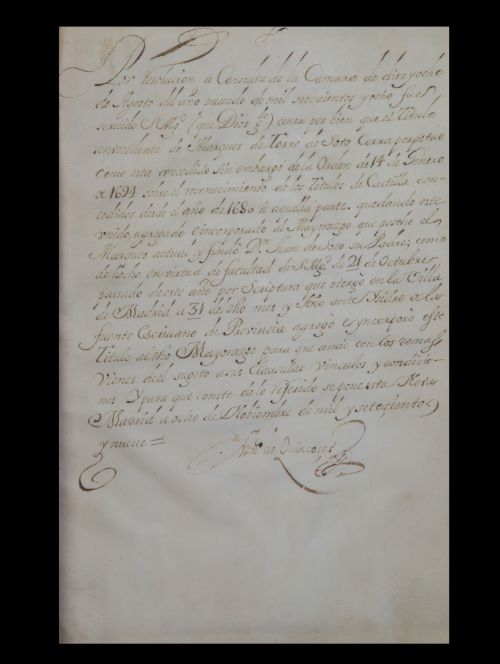 Por resolucion a Consulta de la Camara de diez y ocho
de Agosto del año pasado de mil setecientos y ocho fue
servido S. Mg.d (que Dios g.de) tener por bien que el Titulo
antecedente de Marques de Torre de Soto Corra perpetuo
como esta concedido sin embargo de la Orden de 14 de Henero
de 1694 sobre el reconocimiento de los Titulos de Castilla con-
cedidos desde el año de 1680 a aquella parte. quedando este
unido, agregado e incorporado al Mayorazgo que posehe el
Marques actual y fundó D.n Juan de Soto su Padre, como
de hecho en virtud de facultad de S. Mg.d de 21 de Octubre
pasado de este año por Scriptura que otorgó en la Villa
de Madrid a 31 de dho mes y Año ante Isidro a la
fuente Escrivano de Provincia agregó e yncorporó este
Titulo al dho Mayorazgo para que ande con los demas
Vienes del sugeto a sus Clausulas vinculos y condicio-
nes. Y para que conste de lo referido se pone esta Nota
Madrid a ocho de Noviembre de mil y setecientos
y nueve =
de Quincoces